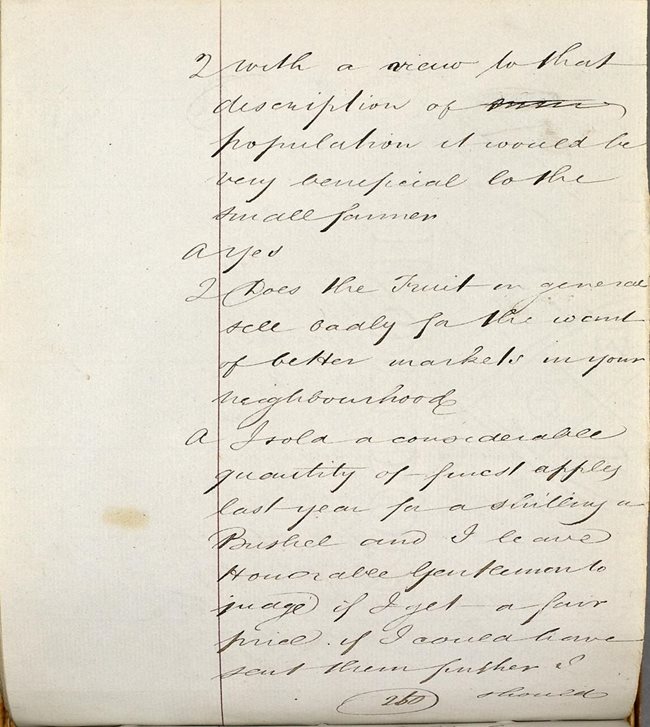 Q with a view to that
description of
population it would be
very beneficial to the
small farmer
A Yes
Q Does the Fruit in general
sell badly for the want
of better markets in your
neighbourhood
A I sold a considerable
quantity of finest apples
last year for a shilling a
Bushel and I leave
Honorable Gentlemen to
judge if I get a fair
price. if I could have
sent them further I
260 should